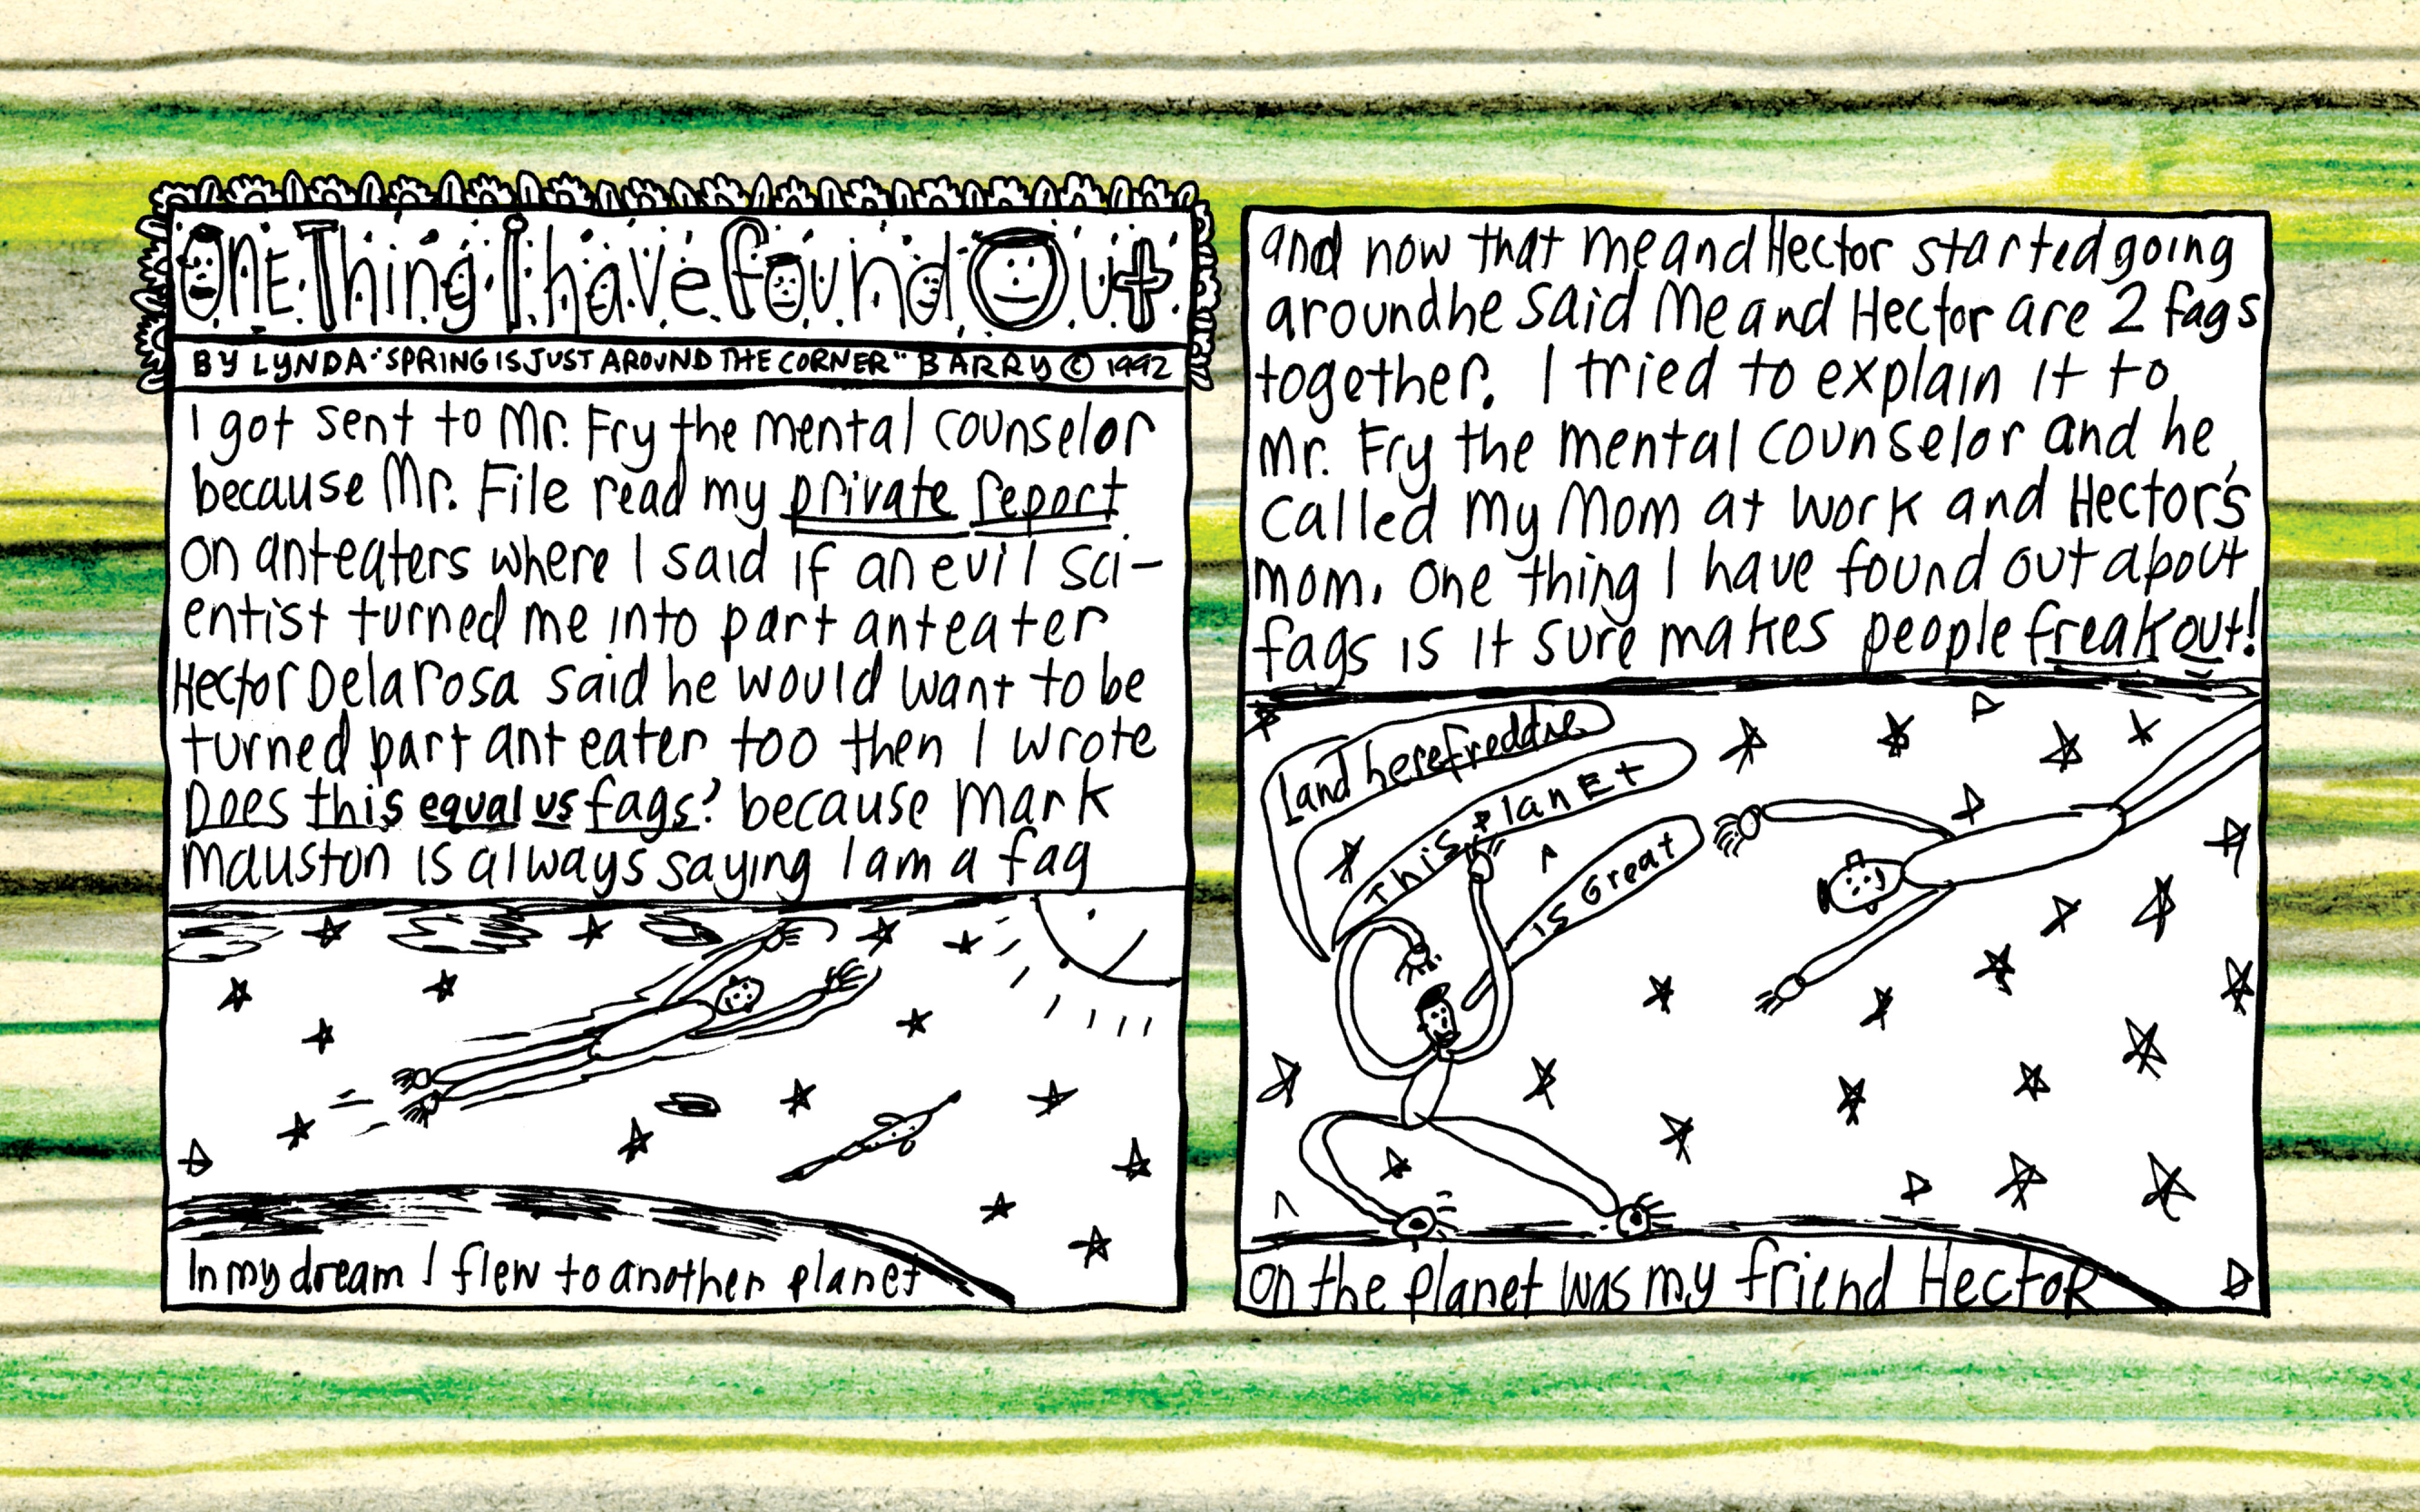 One Thing I have found Out
BY LYNDA "SPRING IS JUST AROUND THE CORNER" BARRY © 1992
I got sent to Mr. Fry the mental counselor
because Mr. File read my private report
on anteaters where I said if an evil sci-
entist turned me into part anteater
Hector Delarosa said he would want to be
turned part ant eater too then I wrote
Does this equal us fags? because Mark
Mauston is always saying I am a fag
In my dream I flew to another planet
and now that me and Hector started going
around he said Me and Hector are 2 fags
together. I tried to explain it to
Mr. Fry the mental counselor and he
called my Mom at work and Hector's
mom. One thing I have found out about
fags is it sure makes people freak out!
Land here freddie
This planet
is Great
on the planet was my friend Hector